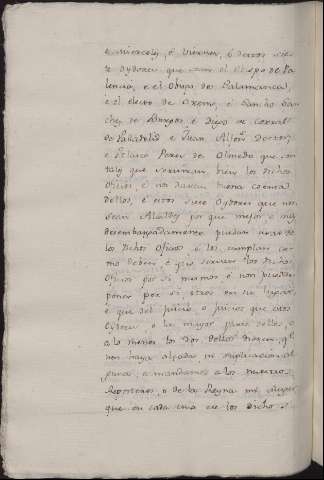 e miercoles, e viernes, e destos siete
oydores que son el Obispo de Palencia,
e el Obispo de Salamanca,
e el electo de Orense, e Sancho Sanchez
de Burgos, e Diego de Corral
de Valladolid e Juan Alfon Doctor,
e Velasco Perez de Olmedo que son
tales que serviran bien los dichos
oficios, e nos daran buena cuenta
dellos, e estos siete Oydores que non
sean Alcaldes por que mejor e mas
desembargadamente puedan usar de
los dichos oficios e los cumplan como
deben, e que sirvan los dichos
oficios por si mismos e non puedan
poner por si, otros en su lugar,
e que del juicio, o juicios que estos
Oydores, o la mayor parte dellos, o
a lo menos los dos dellos dieren, que
non haya alzada ni suplicacion al
guna, e mandamos a los nuestros
Reposteros, o de la Reyna mi muger
que en cada una de los dichos